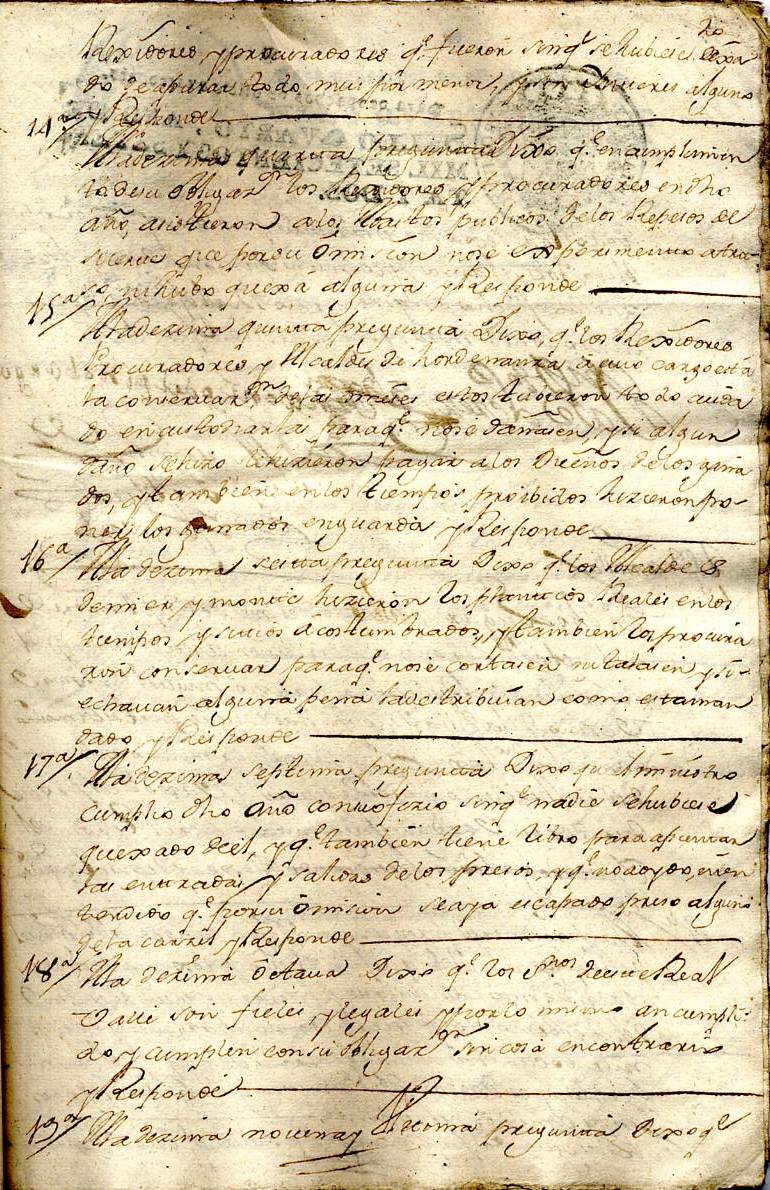 Rexidores, y procuradores q.e fueron sinq.e se hubiese dexa
do de apurar todo mui por menor, y sin
y Responde
14a/ A la dezima quarta pregunta Dixo q.e en cumplimien
to de su obligaz.on los Rexidores y procuradores en dho
año, asistieron a los Abastos publicos de los Repesos de
suerte que por su omision no se experimento atra-
so, ni hubo quexa alguna y Responde
15a/ A la dezima quinta pregunta Dixo, q.e los Rexidores
Procuradores y Alcaldes de hordenanza a cuio cargo está
la conservaz.on de las mieses estos tubieron todo cuida
do en custodiarlas para q.e no se dañasen, y si algun
daño se hizo le hizieron pagar a los Dueños de los gana
dos, y tambien en los tiempos proibidos hizieron po-
ner los ganados en guarda y Responde
16a/ A la dezima sesta pregunta Dixo q.e los Alcaldes
de mier y monte hizieron los plantios Reales en los
tiempos y sitios acostumbrados, y tambien los procura
ron conservar para q.e no se cortasen ni talasen y si
echavan alguna pena la destribuían como esta man
dado y Responde
17a/ A la dezima septima pregunta Dixo que el ministro
cumplio dho año con su oficio sin q.e nadie se hubiese
quexado de el, y q.e tambien tiene libro para apuntar
las entradas y salidas de los presos, y q.e no a oydo, ni en
tendido q.e por su omision se aya escapado preso alguno
de la carzel y Responde
18a/ A la dezima octava Dixo q.e los s.nos de este Real
Valle son fieles, y legales y por lo mismo an cumpli
do y cumplen con su obligaz.on sin cosa en contrario
y Responde
19a/ A la dezima novena y pregunta Dixo q.e